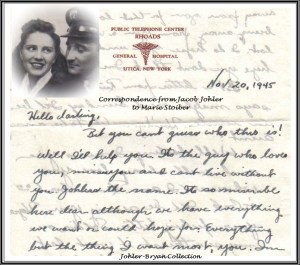 PUBLIC TELEPHONE CENTER
RHOADS
GENERAL HOSPITAL
UTICA, NEW YORK
Nov 20, 1945
Correspondence from Jacob Johler
to Marie Stoiber
Hello darling,
But you cant guess who this is!
Well I'll help you. Its the guy who loves
you, misses you and cant live without
you. Johlers the name. Its so miserable
here dear although we have everything
we want or could hope for. Everything
but the thing I want most, you. Im
Johler-Bryan Collection